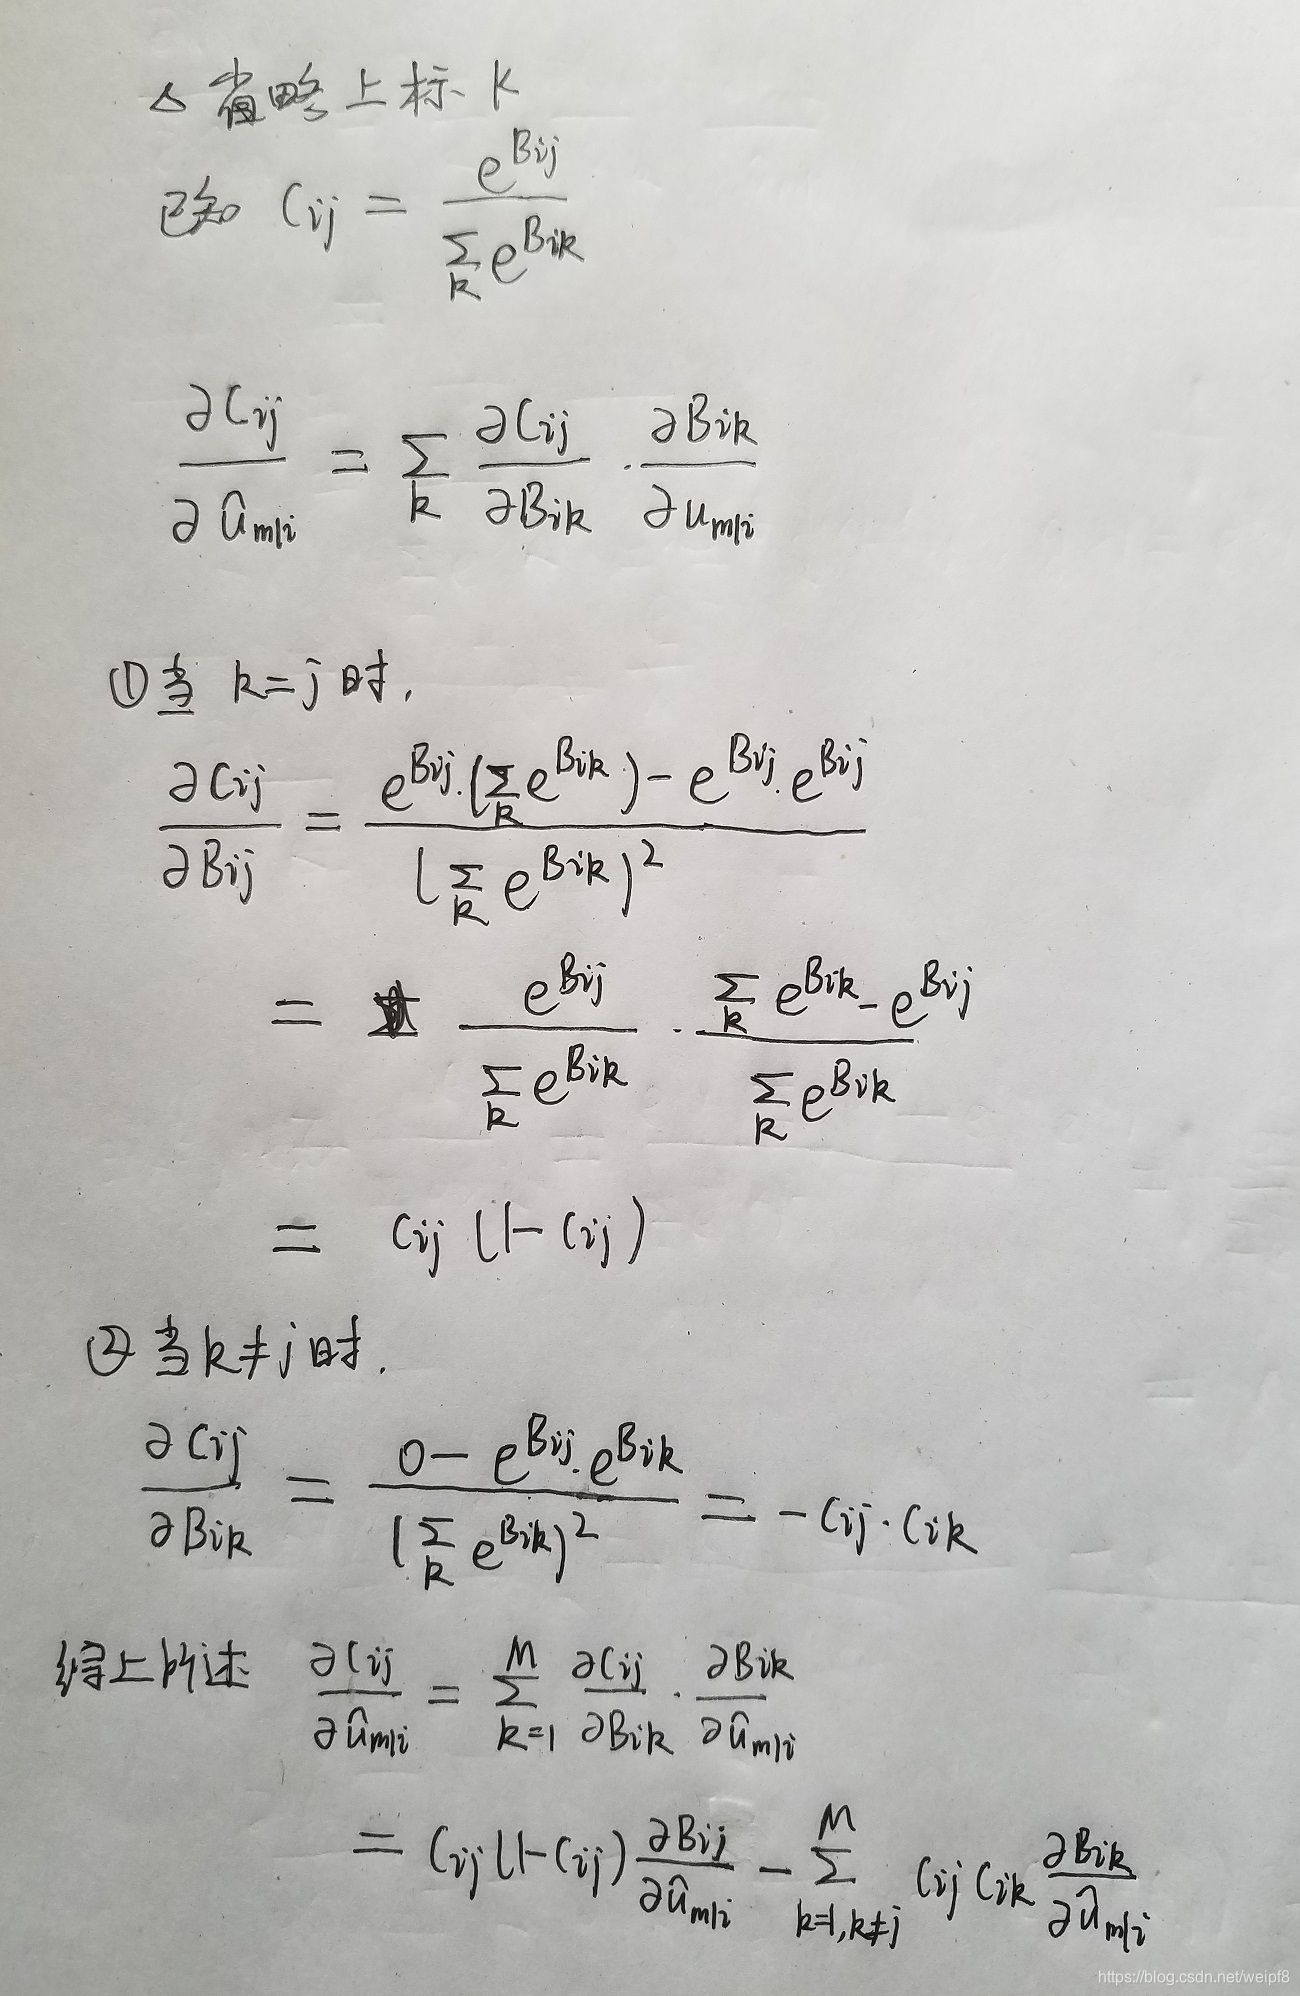 △ 省略上标 k
已知 C_{ij} = \frac{e^{B_{ij}}}{\sum_k e^{B_{ik}}}
\frac{\partial C_{ij}}{\partial \hat{u}_{m|i}} = \sum_k \frac{\partial C_{ij}}{\partial B_{ik}} \cdot \frac{\partial B_{ik}}{\partial u_{m|i}}
① 当 k=j 时,
\frac{\partial C_{ij}}{\partial B_{ij}} = \frac{e^{B_{ij}} \cdot (\sum_k e^{B_{ik}}) - e^{B_{ij}} \cdot e^{B_{ij}}}{(\sum_k e^{B_{ik}})^2}
= \frac{e^{B_{ij}}}{\sum_k e^{B_{ik}}} \cdot \frac{\sum_k e^{B_{ik}} - e^{B_{ij}}}{\sum_k e^{B_{ik}}}
= C_{ij} (1 - C_{ij})
② 当 k≠j 时.
\frac{\partial C_{ij}}{\partial B_{ik}} = \frac{0 - e^{B_{ij}} \cdot e^{B_{ik}}}{(\sum_k e^{B_{ik}})^2} = -C_{ij} \cdot C_{ik}
综上所述 \frac{\partial C_{ij}}{\partial \hat{u}_{m|i}} = \sum_{k=1}^{M} \frac{\partial C_{ij}}{\partial B_{ik}} \cdot \frac{\partial B_{ik}}{\partial \hat{u}_{m|i}}
= C_{ij} (1 - C_{ij}) \frac{\partial B_{ij}}{\partial \hat{u}_{m|i}} - \sum_{k=1, k≠j}^{M} C_{ij} C_{ik} \frac{\partial B_{ik}}{\partial \hat{u}_{m|i}}
https://blog.csdn.net/weipf8